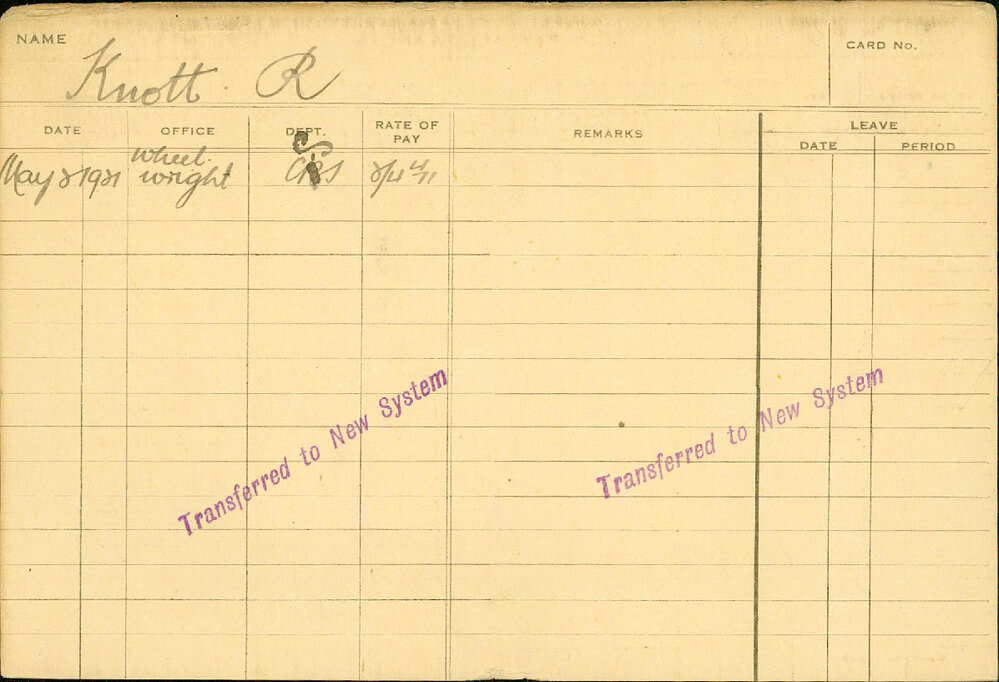 NAME
Knott. R
CARD No.
DATE
OFFICE
DEPT.
RATE OF
PAY
REMARKS
LEAVE
DATE
PERIOD
May 2 1921
wheel.
wright
Transferred to New System
Transferred to New System